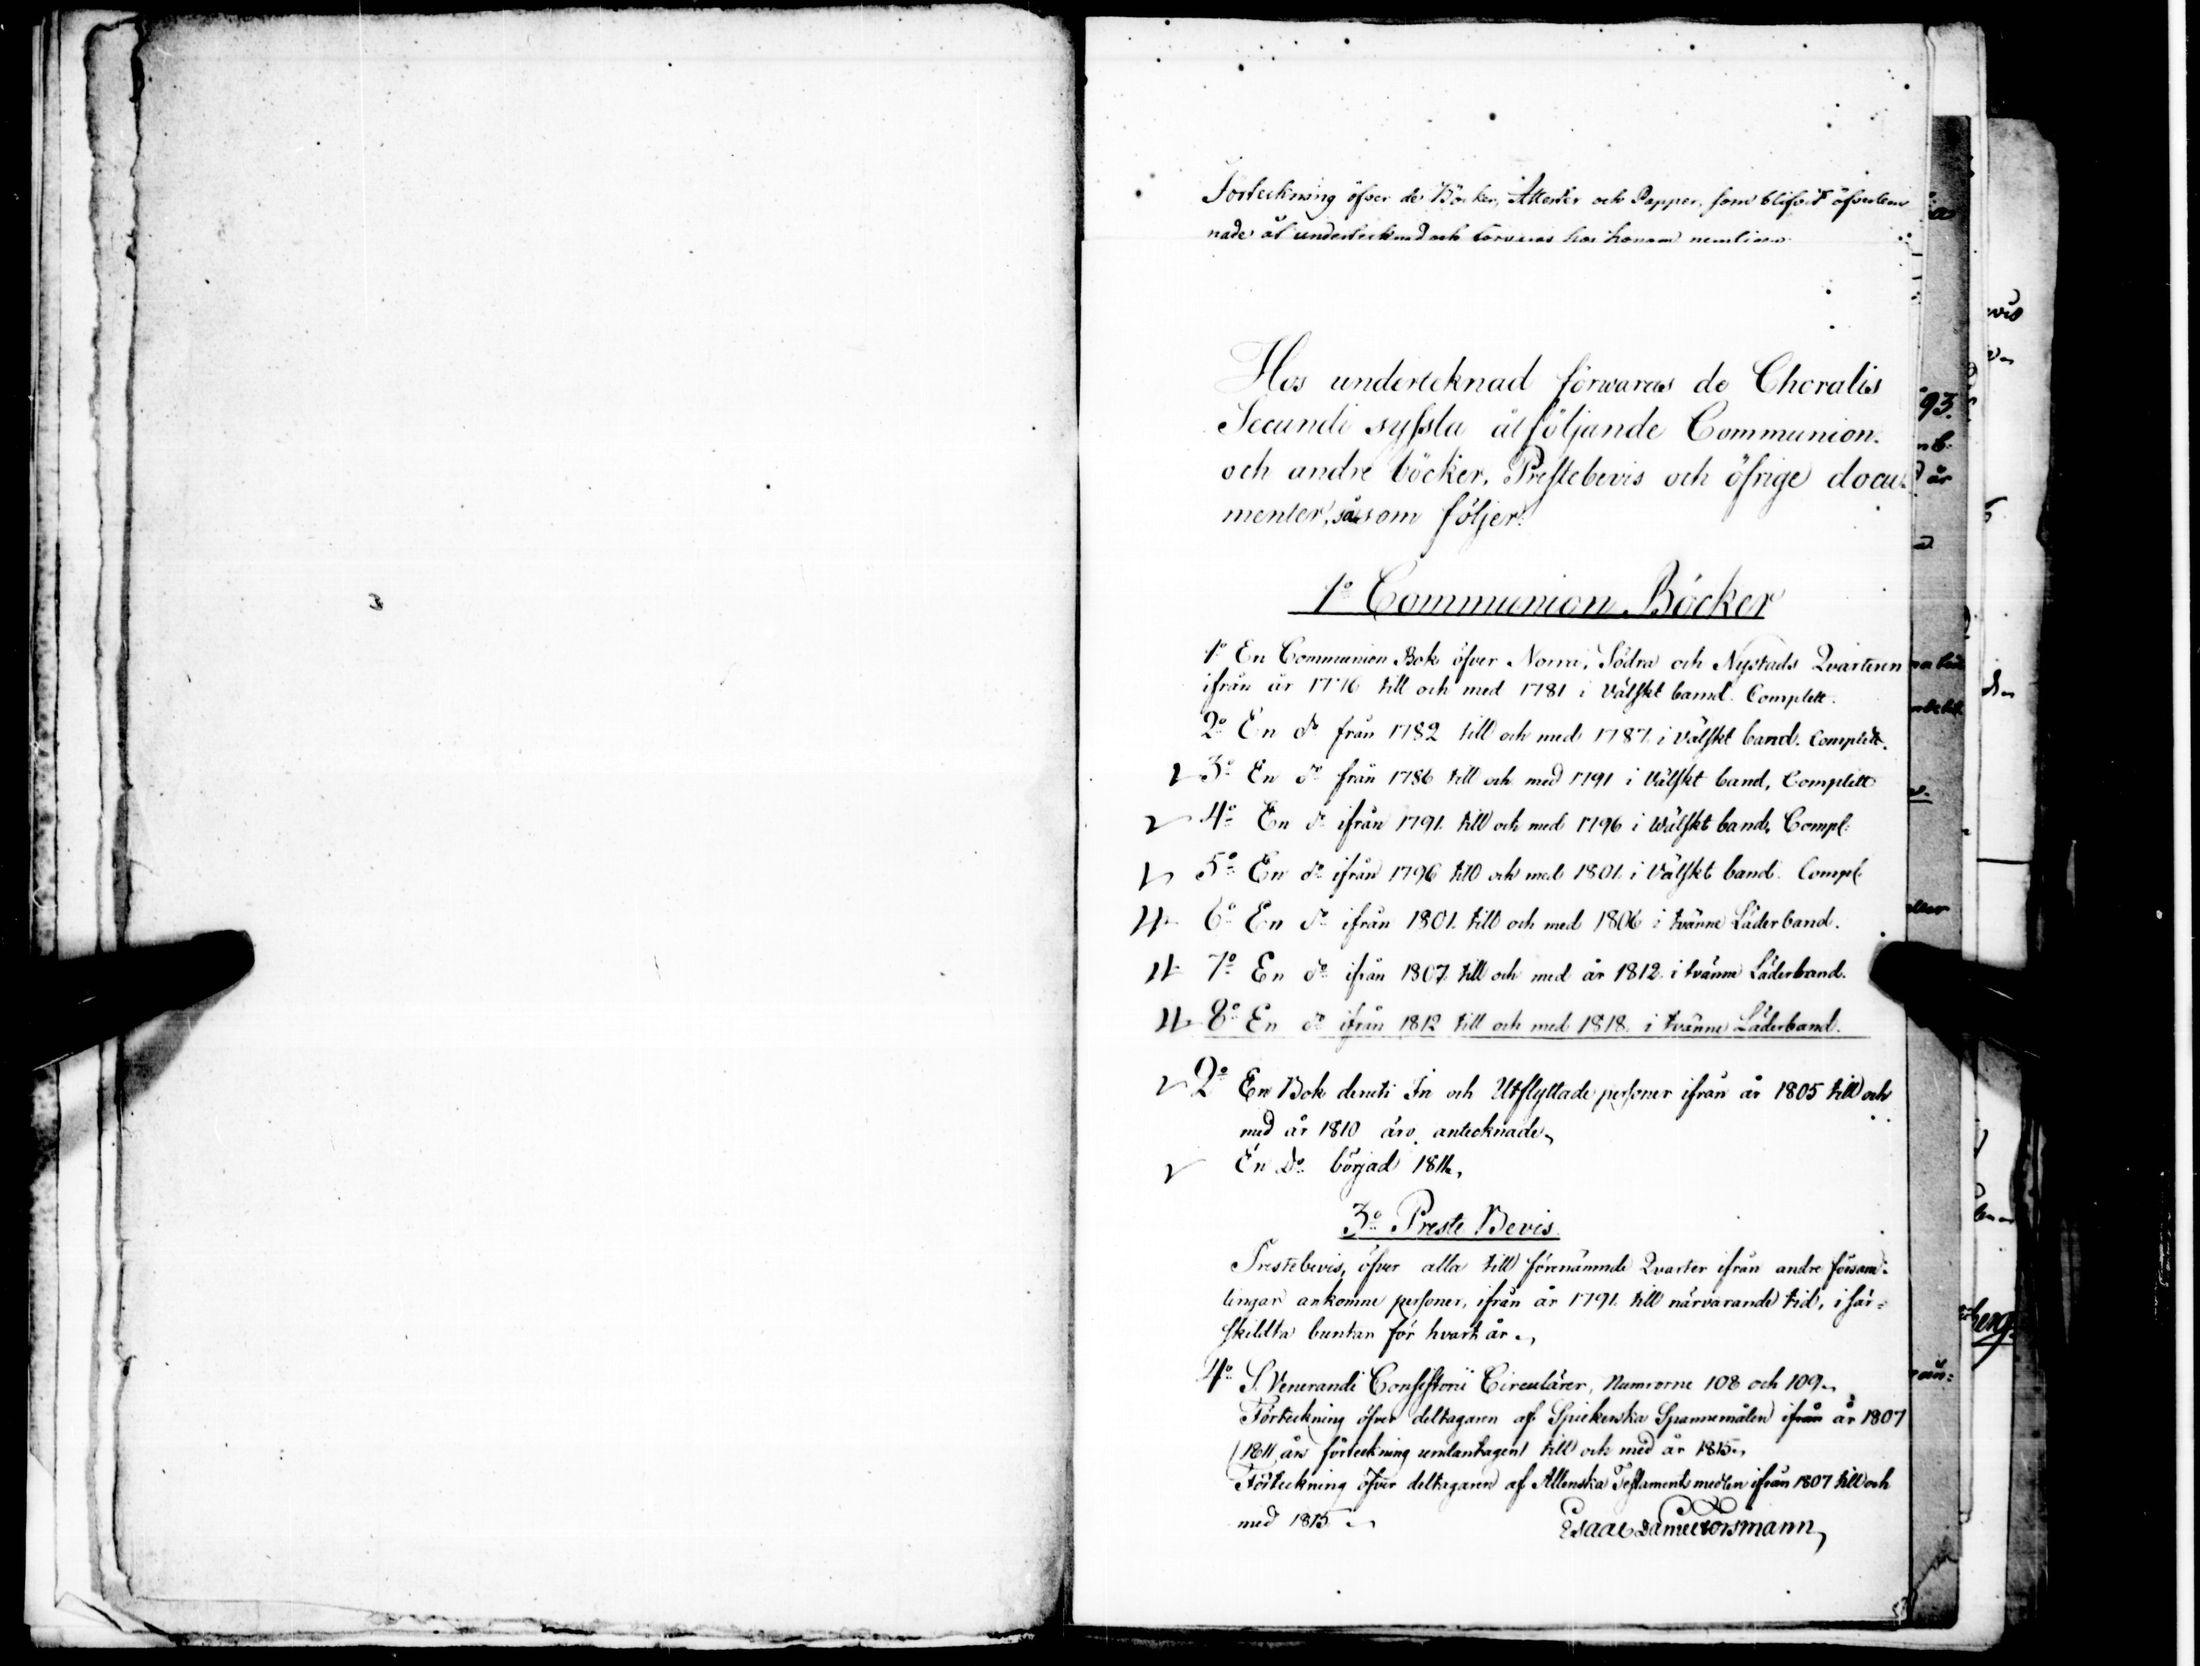 Förteckning öfver de Böcker, Attester och Papper, som blifvit öfverlem
nade åt undertecknad och förvaras hos honom nemligen
Hos undertecknad förwaras de Choralis
Secundi syssla åtföljande Communion.
och andre böcker, Prestebevis och öfrige docu-
menter, såsom följer:
1o Communion Böcker
1o En Communion Bok öfver Norra, Södra och Nystads Qvarteren
ifrån år 1776 till och med 1781 i Välskt band. Complett.
2o En do från 1782 till och med 1787. i välskt band. Complett.
3o En do från 1786 till och med 1791 i Välskt band, Complett
4o En do ifrån 1791. till och med 1796 i Wälskt band, Compl:
5o En do ifrån 1796 till och med 1801. i Välskt band. Compl.
6o En do ifrån 1801. till och med 1806 i tvänne Läderband.
7o En do ifrån 1807. till och med år 1812. i tvänne Läderband.
8o En do ifrån 1812 till och med 1818. i tvänne Läderband.
2o En Bok deruti In och Utflyttade personer ifrån år 1805 till och
med år 1810 äro antecknade,
En Do börjad 1811,
3o Preste Bevis.
Prestebevis, öfver alla till förenämnde Qvarter ifrån andre försam-
lingar ankomne personer, ifrån år 1791. till närvarande tid, i sär-
skildta buntar för hvart år.
4o S. Venerandi Consistorii Circulärer, Numrorne 108 och 109.
Förteckning öfver deltagaren af Spiekerska Spannemålen ifrån år 1807
(1811 års förteckning undantagen) till och med år 1815.
Förteckning öfver deltagaren af Allenska Testamentsmedlen ifrån 1807 till och
med 1815
Esaac Daniel Forsmann,